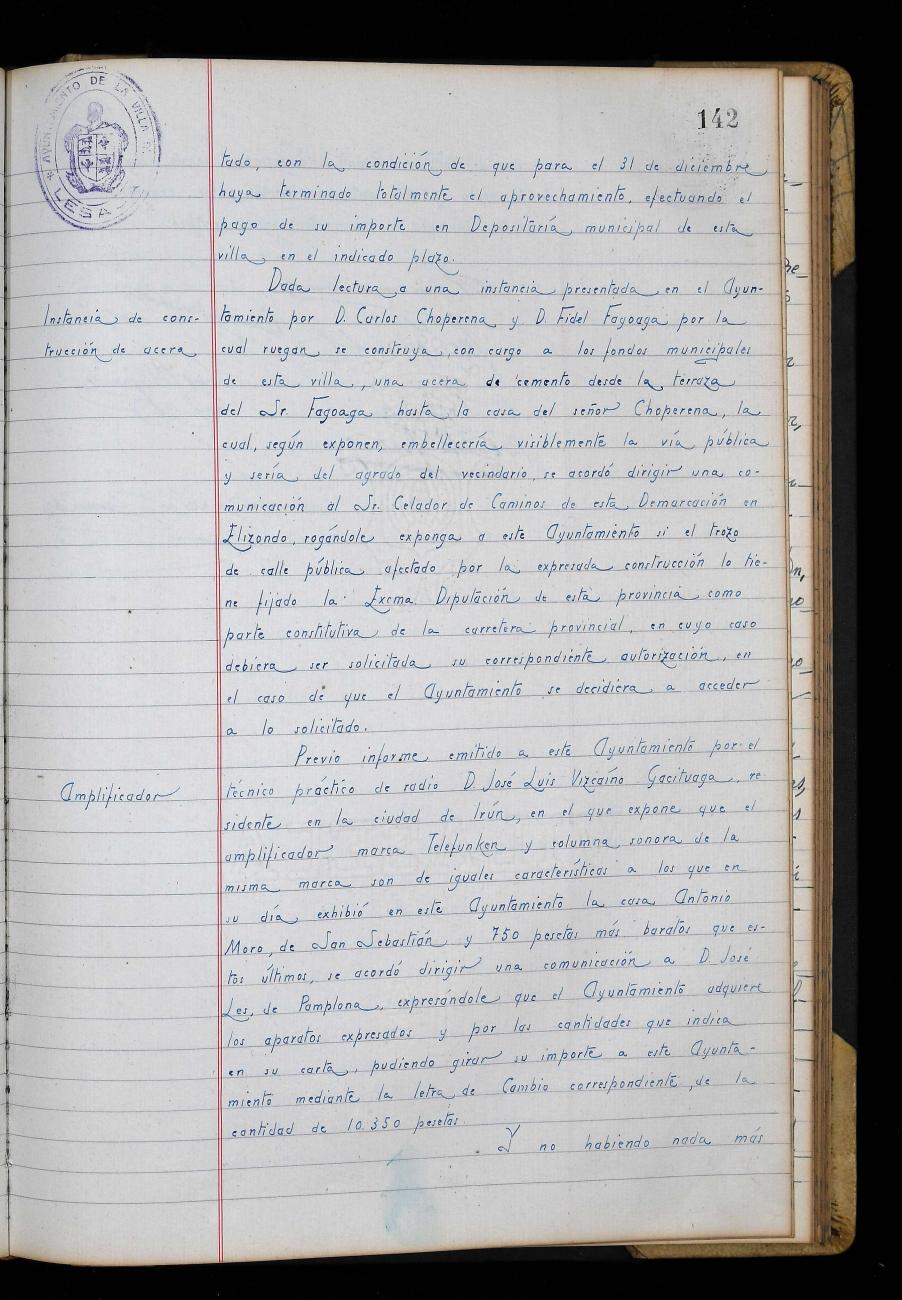 142
AYUNTAMIENTO DE LA VILLA DE
LESACA
tado, con la condición de que para el 31 de diciembre
haya terminado totalmente el aprovechamiento, efectuando el
pago de su importe en Depositaría municipal de esta
villa en el indicado plazo.
Dada lectura a una instancia presentada en el Ayun-
Instancia de cons-
trucción de acera
tamiento por D. Carlos Choperena y D. Fidel Fagoaga por la
cual ruegan se construya, con cargo a los fondos municipales
de esta villa, una acera de cemento desde la terraza
del Sr. Fagoaga hasta la casa del señor Choperena, la
cual, según exponen, embellecería visiblemente la vía pública
y sería del agrado del vecindario, se acordó dirigir una co-
municación al Sr. Celador de Caminos de esta Demarcación en
Elizondo, rogándole exponga a este Ayuntamiento si el trozo
de calle pública afectado por la expresada construcción lo tie-
ne fijado la Excma. Diputación de esta provincia como
parte constitutiva de la carretera provincial, en cuyo caso
debiera ser solicitada su correspondiente autorización, en
el caso de que el Ayuntamiento se decidiera a acceder
a lo solicitado.
Previo informe emitido a este Ayuntamiento por el
Amplificador
técnico práctico de radio D. José Luis Vizcaíno Gacituaga, re
sidente en la ciudad de Irún, en el que expone que el
amplificador marca Telefunken y columna sonora de la
misma marca son de iguales características a los que en
su día exhibió en este Ayuntamiento la casa Antonio
Moro, de San Sebastián y 750 pesetas más baratos que es-
tos últimos, se acordó dirigir una comunicación a D. José
Les, de Pamplona, expresándole que el Ayuntamiento adquiere
los aparatos expresados y por las cantidades que indica
en su carta, pudiendo girar su importe a este Ayunta-
miento mediante la letra de Cambio correspondiente, de la
cantidad de 10.350 pesetas.
Y no habiendo nada más